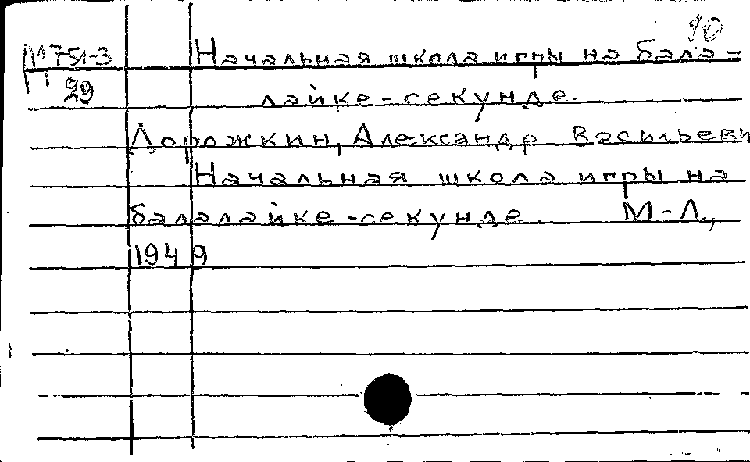 90
М 751-3
29
Начальная школа игры на бала-
лайке-секунде.
Дорожкин, Александр Васильеви
Начальная школа игры на
балалайке-секунде. М-Л.,
1949